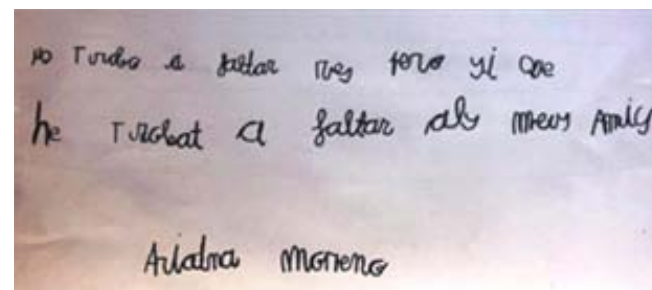 no Trobo a faltar res pero si que
he Trobat a faltar als meus Amics
Ariadna Moreno